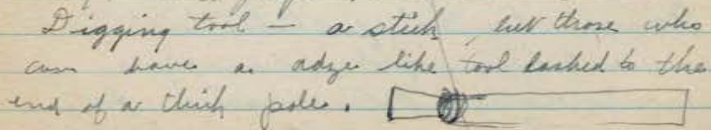 Digging tool — a stick, but those who
can have a adge like tool lashed to the
end of a thick pole.